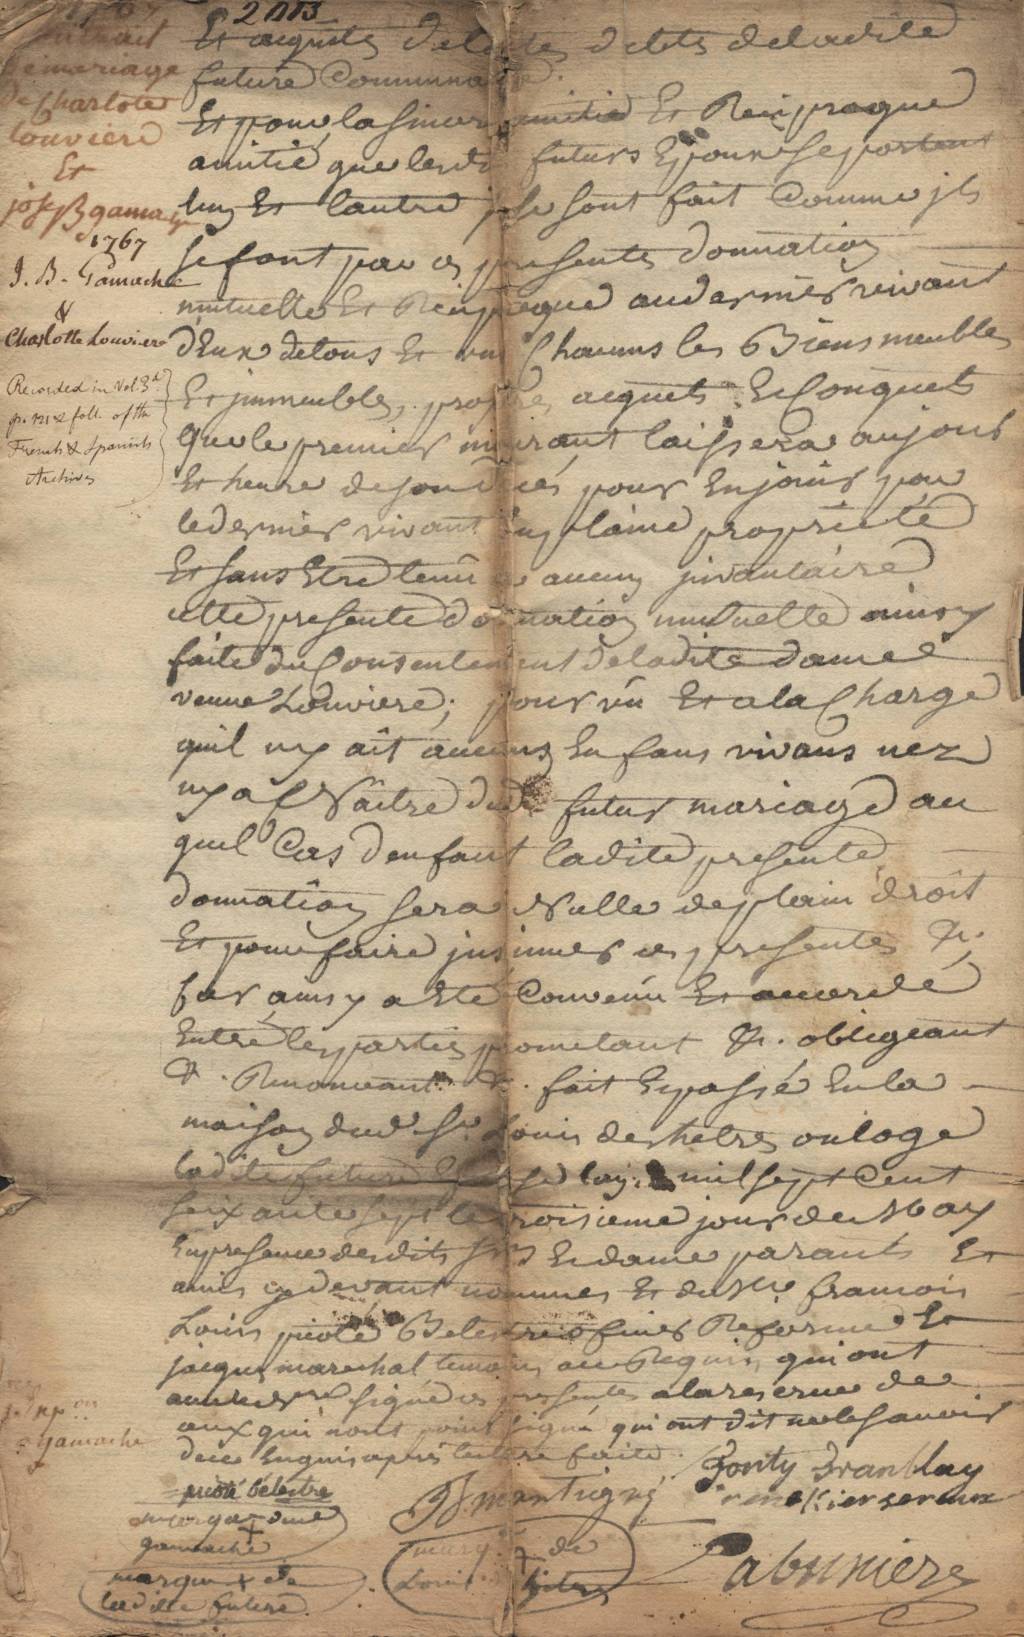 2013
Contrat
de mariage
de Charlote
Louviere
Et
joseph gamache
1767
J. B. Gamache
&
Charlotte Louviere
Recorded in Vol. 3d
p. 121 & foll. of the
French & Spanish
Archives
Et acquits de dettes ladite
future Communauté.
Et pour la sincere amitié Et Reciproque
amitié que lesdts futurs Epoux se portent
lun Et lautre jls se sont fait Comme jls
se font par ces presentes donnation
mutuelle Et Reciproque au dernier vivant
d'Eux de tous Et un Chacuns les Biens meubles
Et jmmeubles, propres, acquets Et Conquets
Que le premier mourant laissera au jour
Et heure de son decés pour En jouir par
le dernier vivant En plaine proprieté
Et sans Etre tenu a aucun jnvantaire
cette presente donnation mutuelle ainsy
faite du Consentement de ladite dame
veuve Louviere; pourvû Et a la Charge
quil ny ait aucuns Enfans vivans nez
ny a Naître dud. futur mariage au
quel Cas d'enfant ladite presente
donnation sera Nulle de plain droit
Et pour faire jnsinuer ces presentes &c.
Car ainsy a Eté Convenu Et accordé
Entre les parties promettant &c. obligeant
&c. Renonceant &c. fait Et passé En la
maison dud. Sr. Louis deshetres ou loge
ladite future Epouse Lan mil sept Cent
soixante sept le troisieme jour de May
En presence desdits Srs Et dame parants Et
amis cy devant nommes Et du Sr. francois
Louis picoté Belestre officier Reformé Et
jacques marechal temoins au Requis qui ont
avec signé ces presentes a la reserve de
ceux qui n'ont point signé qui ont dit ne le savoir
de ce Enquis apres lecture faite.
picoté belestre
JB. martigné
Gonty Tranblay
rene Kiersereaux
marque + dud.
gamache
marque + de
Louis deshetres
marque + de
ladite future
Labuxiere
Expon
gamache